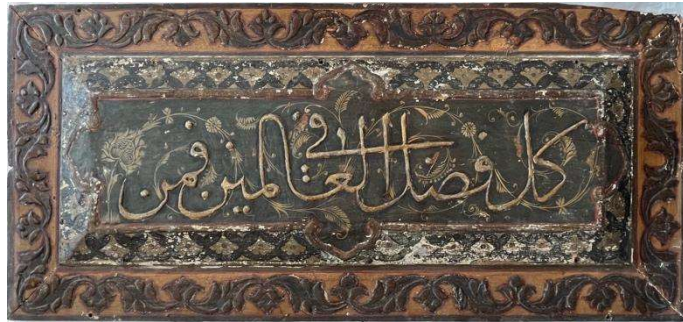 كل فضل في العالمين فمن